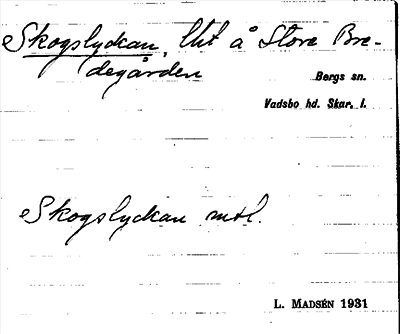 Skogslyckan, lht å Stora Bre-
degården
Bergs sn.
Vadsbo hd. Skar. l.
Skogslyckan mtl.
L. MADSÉN 1931